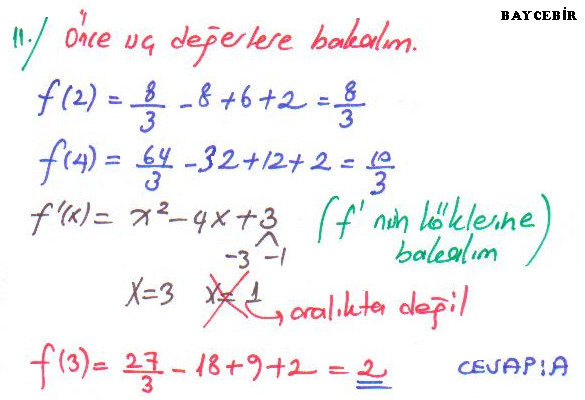 BAYCEBİR
11./ Önce uç değerlere bakalım.
f(2) = 8/3 - 8 + 6 + 2 = 8/3
f(4) = 64/3 - 32 + 12 + 2 = 10/3
f'(x) = x² - 4x + 3 (f' nün köklerine bakalım)
-3 -1
x=3 x=1 → aralıkta değil
f(3) = 27/3 - 18 + 9 + 2 = 2 CEVAP:A